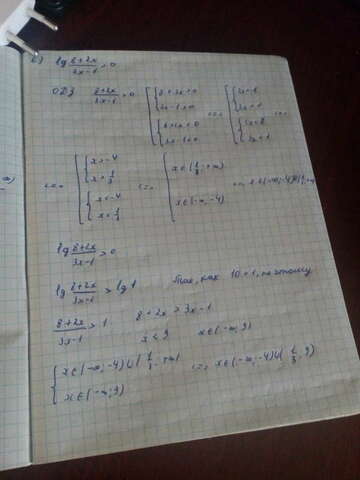 б) lg (8+2x)/(3x-1) > 0
ОДЗ (8+2x)/(3x-1) > 0 [ { 8+2x>0 3x-1>0 { 8+2x<0 3x-1<0 <=> [ {
<=> [ { x>-4 x>1/3 { x<-4 x<1/3 <=> [ x∈(1/3;+∞) x∈(-∞;-4)
lg (8+2x)/(3x-1) > 0
lg (8+2x)/(3x-1) > lg1 Так, как 10>1, поэтому
(8+2x)/(3x-1) > 1 8+2x > 3x-1
x<9 x∈(-∞;9)
{ x∈(-∞;-4)∪(1/3;+∞) x∈(-∞;9) <=> x∈(-∞;-4)∪(1/3;9)